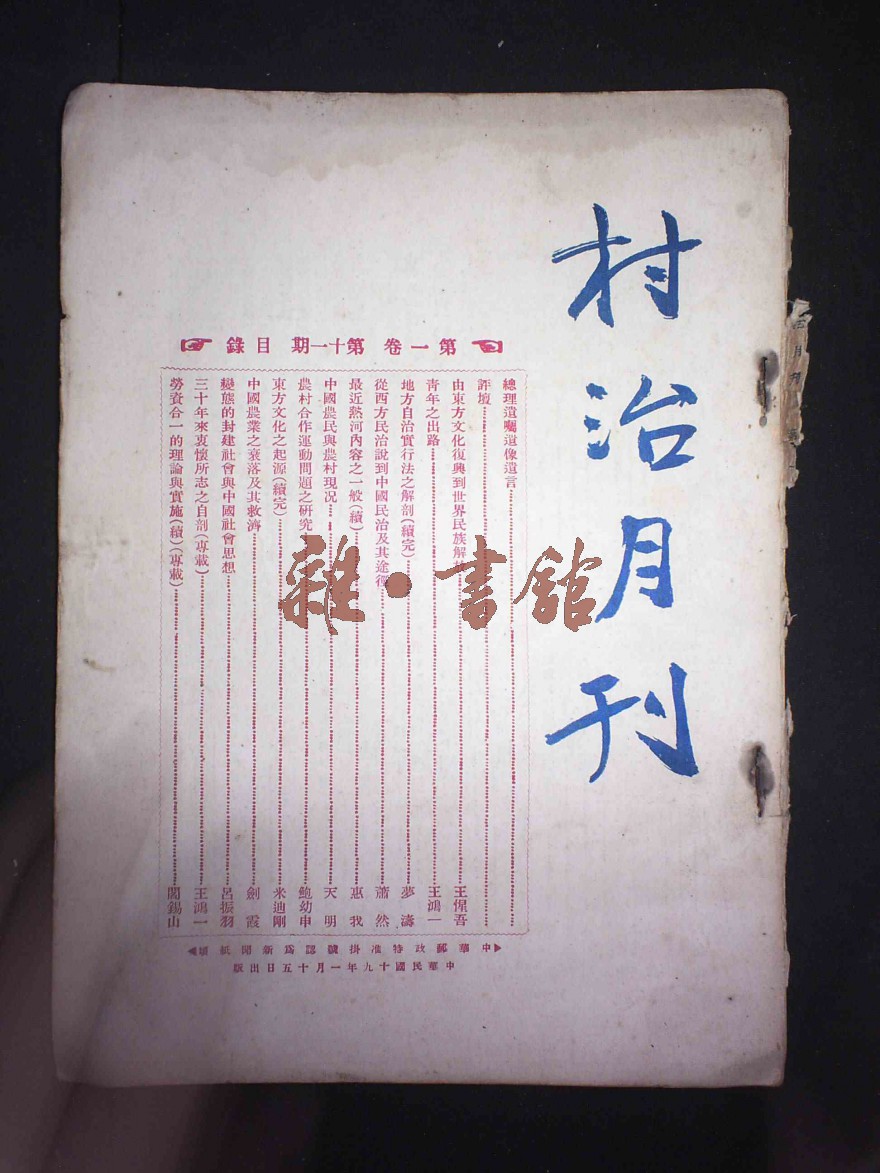 村治月刊
第一卷 第十一期 目錄
總理遺囑遺像遺言
評壇
由東方文化復興到世界民族解 王惺吾
青年之出路 王鴻一
地方自治實行法之解剖(續完) 夢濤
從西方民治說到中國民治及其途徑 蕭然
最近熱河內容之一般(續) 惠我
中國農民與農村現况 天明
農村合作運動問題之研究 鮑幼申
東方文化之起源(續完) 米迪剛
中國農業之衰落及其救濟 劍霞
變態的封建社會與中國社會思想 呂振羽
三十年來衷懷所志之自剖(專載) 王鴻一
勞資合一的理論與實施(續)(專載) 閻錫山
中華郵政特准掛號認爲新聞紙類
中華民國十九年一月十五日出版
雜·書館